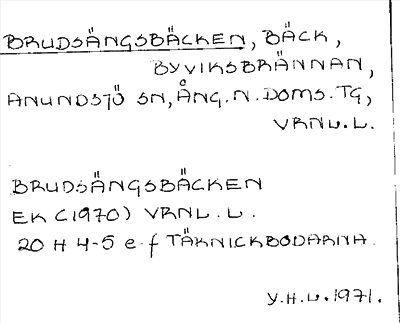 BRUDSÄNGSBÄCKEN, BÄCK,
BYVIKSBRÄNNAN,
ANUNDSJÖ SN, ÅNG. N. DOMS. TG,
VRNL.L.
BRUDSÄNGSBÄCKEN
EK (1970) VRNL.L.
20 H 4-5 e-f TÄRNICKBODARNA.
Y.H.L. 1971.